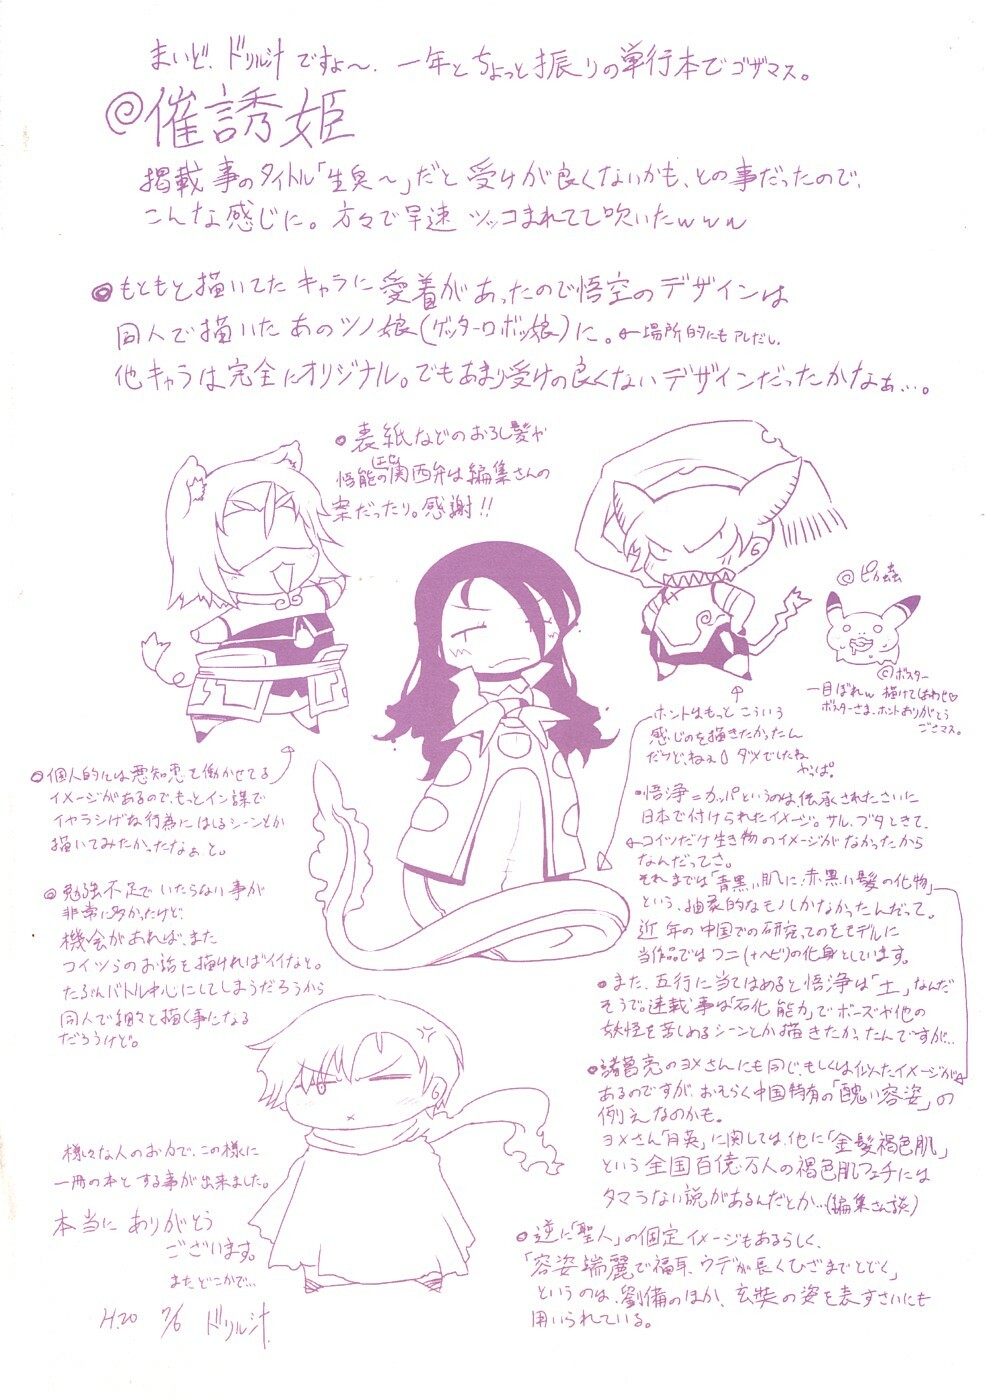 まいど、ドリル汁ですよ〜、一年とちょっと振りの単行本でゴザマス。
@催誘姫
掲載事のタイトル「生臭〜」だと受けが良くないかも、との事だったので、
こんな感じに。方々で早速ツッコまれてて吹いたwww
◎もともと描いてたキャラに愛着があったので悟空のデザインは
同人で描いたあのツノ娘(ゲッターロボッ娘)に。←場所的にもアレだし、
他キャラは完全にオリジナル。でもあまり受けの良くないデザインだったかなぁ…。
○表紙などのおろし髪や
悟能の関西弁は編集さんの
案だったり。感謝!!
@ピカ蟲
©ボスター
一目ぼれw 描けてしあわせ♡
ボスターさま、ホントありがとう
ごさマス。
ホントはもっとこういう
感じのを描きたかったん
だけど、ねぇ()ダメでしたね
やっぱ。
○個人的には悪知恵を働かせてる
イメージがあるので、もっとイン謀で
イヤラシげな行為にはしるシーンとか
描いてみたかったなぁ と。
◎勉強不足でいたらない事が
非常に多かったけど、
機会があれば、また
コイツらのお話を描ければイイなと。
たぶんバトル中心にしてしまうだろうから
同人で細々と描く事になる
だろうけど。
・悟浄=カッパというのは、伝承されたさいに
日本で付けられたイメージ。サル、ブタときて、
コイツだけ生き物のイメージがなかったから
なんだってさ。
それまでは「青黒い肌に、赤黒い髪の化物」
という、抽象的なモノしかなかったんだって。
近年の中国での研究、てのをモデルに
当作品ではワニ(+ヘビ)の化身としています。
○また、五行に当てはめると悟浄は「土」なんだ
そうで。連載事は「石化能力」でポーズや他の
妖怪を苦しめるシーンとか描きたかったんですが…
○諸葛亮のヨメさんにも同じ、もしくは似たイメージが
あるのですが、おそらく中国特有の「醜い容姿」の
例えなのかも。
ヨメさん「月英」に関しては、他に「金髪褐色肌」
という全国百億万人の褐色肌フェチには
タマラない説があるんだとか…(編集さん談)
○逆に「聖人」の固定イメージもあるらしく、
「容姿端麗で福耳、ウデが長くひざまでとどく」
というのは、劉備のほか、玄奘の姿を表すさいにも
用いられている。
様々な人のお力で、この様に
一冊の本とする事が出来ました。
本当に ありがとう
ございます。
またどこかで…
H.20 7/6 ドリル汁